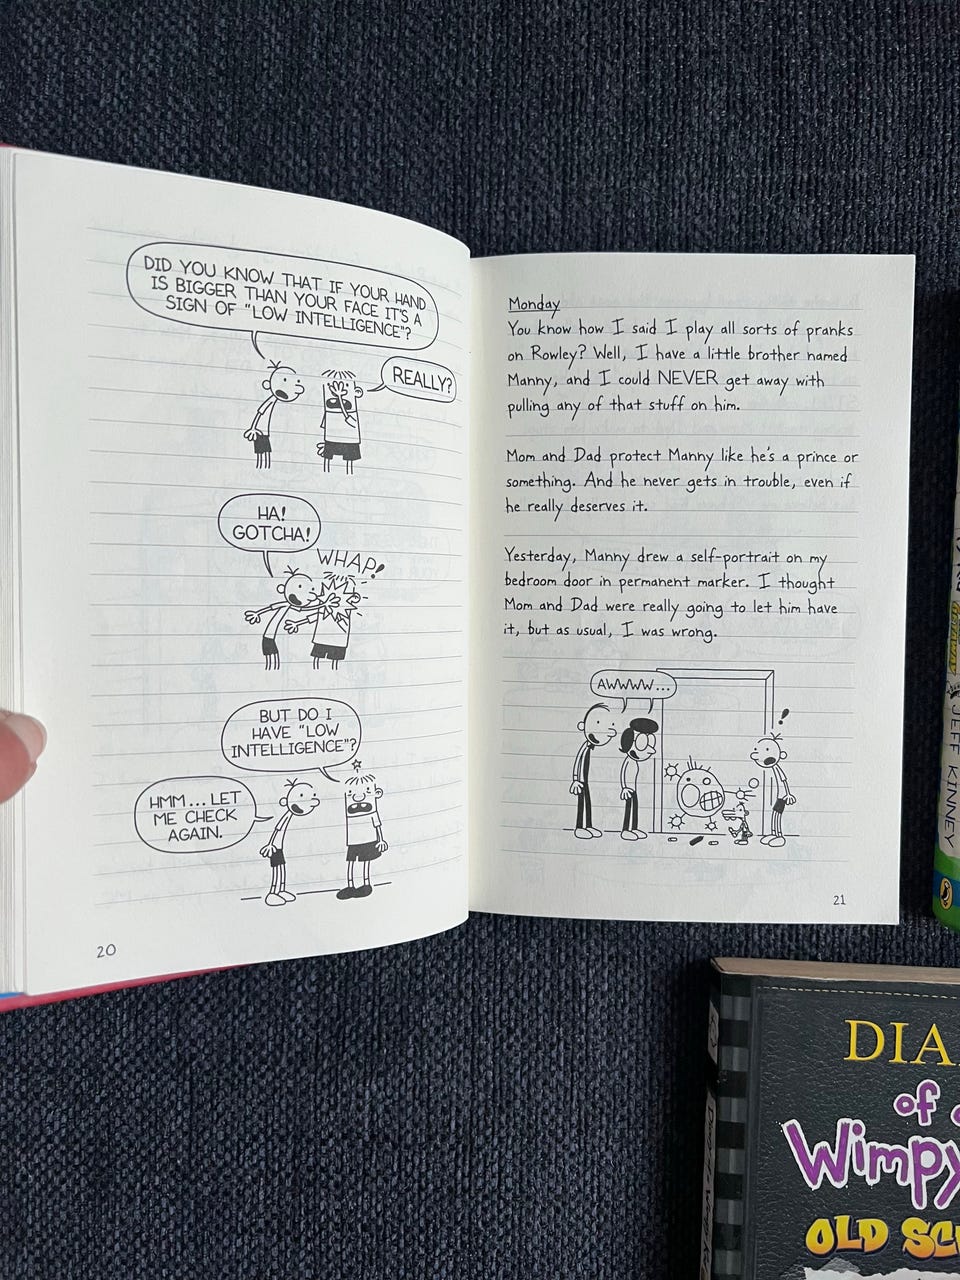 DID YOU KNOW THAT IF YOUR HAND
IS BIGGER THAN YOUR FACE IT'S A
SIGN OF "LOW INTELLIGENCE"?
REALLY?
HA!
GOTCHA!
WHAP!
BUT DO I
HAVE "LOW
INTELLIGENCE"?
HMM... LET
ME CHECK
AGAIN.
20
Monday
You know how I said I play all sorts of pranks
on Rowley? Well, I have a little brother named
Manny, and I could NEVER get away with
pulling any of that stuff on him.
Mom and Dad protect Manny like he's a prince or
something. And he never gets in trouble, even if
he really deserves it.
Yesterday, Manny drew a self-portrait on my
bedroom door in permanent marker. I thought
Mom and Dad were really going to let him have
it, but as usual, I was wrong.
AWWWW...
!
21
JEFF KINNEY
DIA
of a
Wimpy
OLD SC